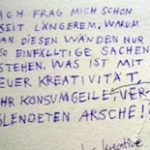 ICH FRAG MICH SCHON
SEIT LÄNGEREM, WARUM
AN DIESEN WÄNDEN NUR
SO EINFÄLTIGE SACHEN
STEHEN. WAS IST MIT
EUER KREATIVITÄT,
IHR KONSUMGEILE, VER-
BLENDETEN ÄRSCHE!
kreative